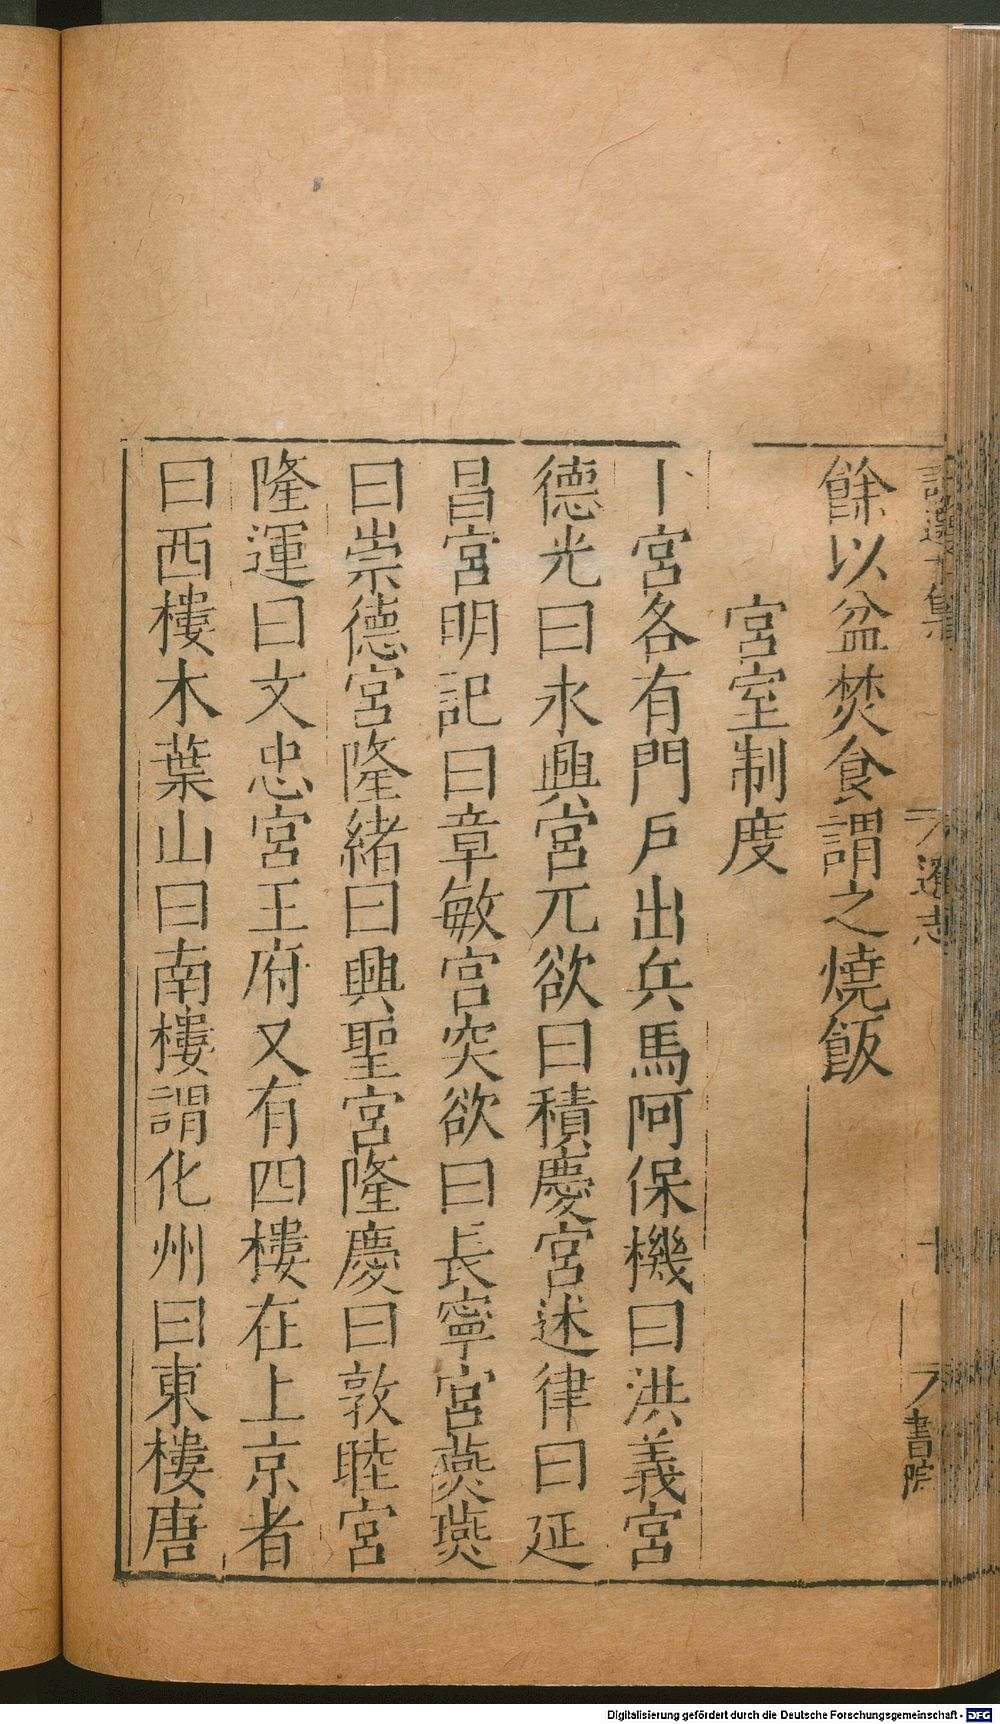 遼志 十 書院
餘以盆焚食謂之燒飯
宮室制度
十宮各有門戶出兵馬阿保機曰洪義宮
德光曰永興宮兀欲曰積慶宮述律曰延
昌宮明記曰章敏宮突欲曰長寧宮燕燕
曰崇德宮隆緒曰興聖宮隆慶曰敦睦宮
隆運曰文忠宮王府又有四樓在上京者
曰西樓木葉山曰南樓謂化州曰東樓唐
Digitalisierung gefördert durch die Deutsche Forschungsgemeinschaft - DFG